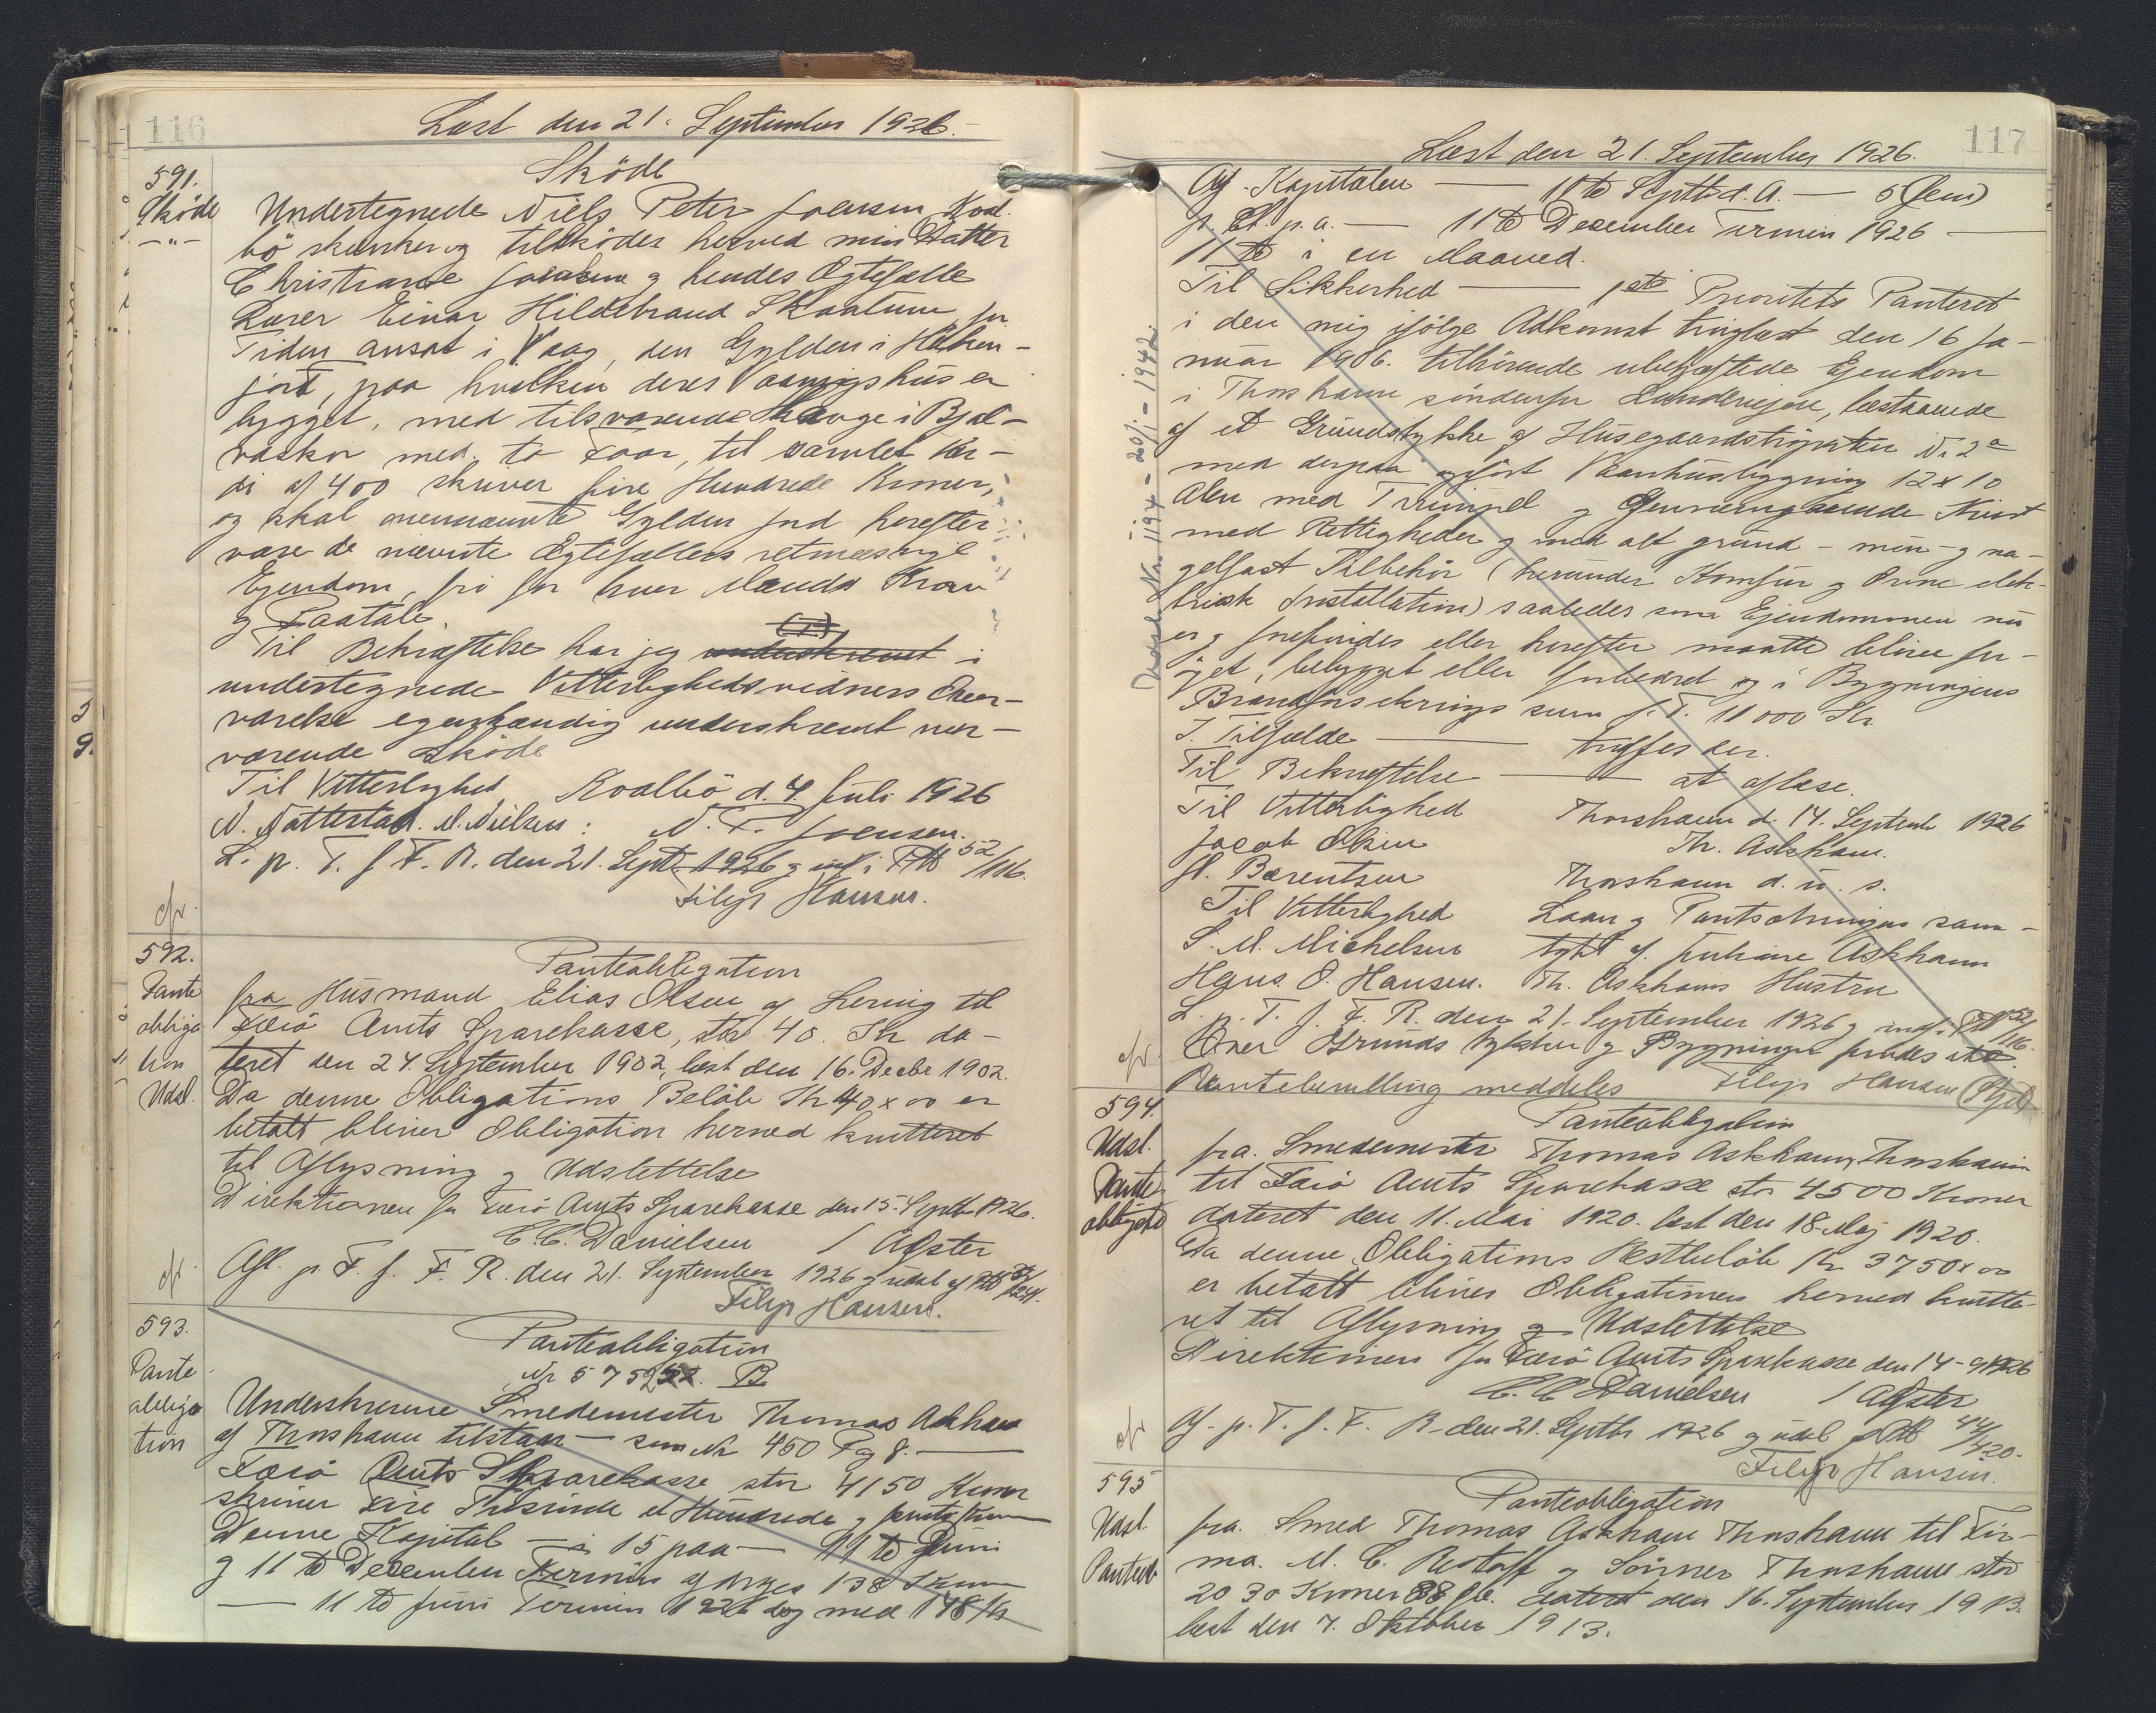 116
Læst den 21. September 1926.
591.
Skøde
Sköde
-"-
Undertegnede Niels Peter Joensen, Kval-
bö skænker og tilsköder herved min Datter
Christiane Joensen og hendes Ægtefælle
Lærer Einar Hildebrand Skaalum, for
Tiden ansat i Vaag, den Gylden i
jord, paa hvilken deres Vaaningshus er
bygget, med tilsvarende Hauge i
med to Faar, til samlet Vær-
di af 400 skriver fire Hundrede Kroner,
og skal ovennævnte Gylden Jord herefter
være de nævnte Ægtefællers retmæssige
Ejendom, fri for hver Mands Krav
og Paatale.
Til Bekræftelse har jeg underskrevet i
undertegnede Vitterlighedsvidners Over-
værelse egenhændig underskrevet nær-
værende Sköde
Til Vitterlighed Kvalbö d. 4. Juli 1926
N. Nattestad. M. Nielsen: N. P. Joensen.
L. p. T. f. F. R. den 21. Sept. 1926 og indf. i PB 52/116.
Filip Hansen.
cfr.
592.
Pante
obliga
tion
Udsl.
Panteobligation
fra Husmand Elias Olsen af Lervig til
Færö Amts Sparekasse, stor 40. Kr da-
teret den 24. September 1902, læst den 16. Decbr 1902.
Da denne Obligations Belöb Kr 40 x 00 er
betalt bliver Obligation herved kvitteret
til Aflysning og Udslettelse
Direktionen for Færö Amts Sparekasse den 15. Septbr 1926.
C.C. Danielsen / Apster
Afl. p. T. f. F. R. den 21. September 1926 og udsl. af PB
Filip Hansen.
cfr.
593.
Pante
obliga
tion
Panteobligation
Nr 5752 B
Underskrevne Smedemester Thomas Askham
af Thorshavn tilstaar — som Nr 450 Pag 8. —
Færö Amts Sparekasse stor 4150 Kroner
skriver Fire Tusinde et Hundrede og femti Kroner
Denne Kapital — i 15 paa — 11 te Juni
og 11 te December Termin afdrages 138 Kroner
— 11 te Juni Termin 1926 dog med 148 Kr
117
Læst den 21. September 1926.
Af Kapitalen — 11 te Septbr d. A. — 5 (fem)
pCt. p. a. — 11 te December Termin 1926 —
11 te i en Maaned.
Til Sikkerhed — 1ste Prioritets Panteret
i den mig ifölge Adkomst tinglæst den 16 Ja-
nuar 1906. tilhörende ubehæftede Ejendom
i Thorshavn söndenfor Landevejen, bestaaende
af et Grundstykke af Husegaardstrøen N. 2a
med derpaa opfört Vaanhusbygning 12 x 10
Alen med Trimpel og Gennemgaaende Kvist
med Rettigheder og med alt grund- mur- og na-
gelfast Tilbehör (herunder Komfur og Ovne elek-
trisk Installation) saaledes som Ejendommen nu
er og forefindes eller herefter maatte blive for-
öget, bebygget eller forbedret og i Bygningens
Brandforsikrings sum p. T. 11000 Kr
I Tilfælde — træffes der.
Til Bekræftelse — at aflæse.
Til Vitterlighed Thorshavn d. 14. Septemb 1926
Jacob Olsen Th. Askham.
H. Bærentsen Thorshavn d. u. s.
Til Vitterlighed Laan og Pantsætningen sam-
S. M. Michelsen tykt af Juliane Askham
Hans O. Hansen. Th. Askhams Hustru
L. p. T. f. F. R. den 21. September 1926 og indf. i PB 52/116.
Over Grundstykket og Bygningen findes ikke
Pantebevilling meddeles Filip Hansen
cfr.
Udsl. Nr. 1194 - 20/1 - 1942.
594.
Udsl.
Pante
obligatio
Panteobligation
fra Smedemester Thomas Askham, Thorshavn
til Færö Amts Sparekasse stor 4500 Kroner
dateret den 11. Mai 1920. læst den 18. Maj 1920.
Da denne Obligations Restbelöb Kr 3750 x 00
er betalt bliver Obligationen herved kvitte-
ret til Aflysning og Udslettelse
Direktionen for Færö Amts Sparekasse den 14-9-1926
C. C. Danielsen / Apster
Af. p. T. f. F. R. den 21. Septbr 1926 og udsl. af PB 44/420.
Filip Hansen.
cfr
595
Udsl
Panteob
Panteobligation
fra Smed Thomas Askham Thorshavn til Fir-
ma. M. C. Restorff og Sönner Thorshavn stor
2030 Kroner 88 Øre. dateret den 16. September 1913.
læst den 7. Oktober 1913.